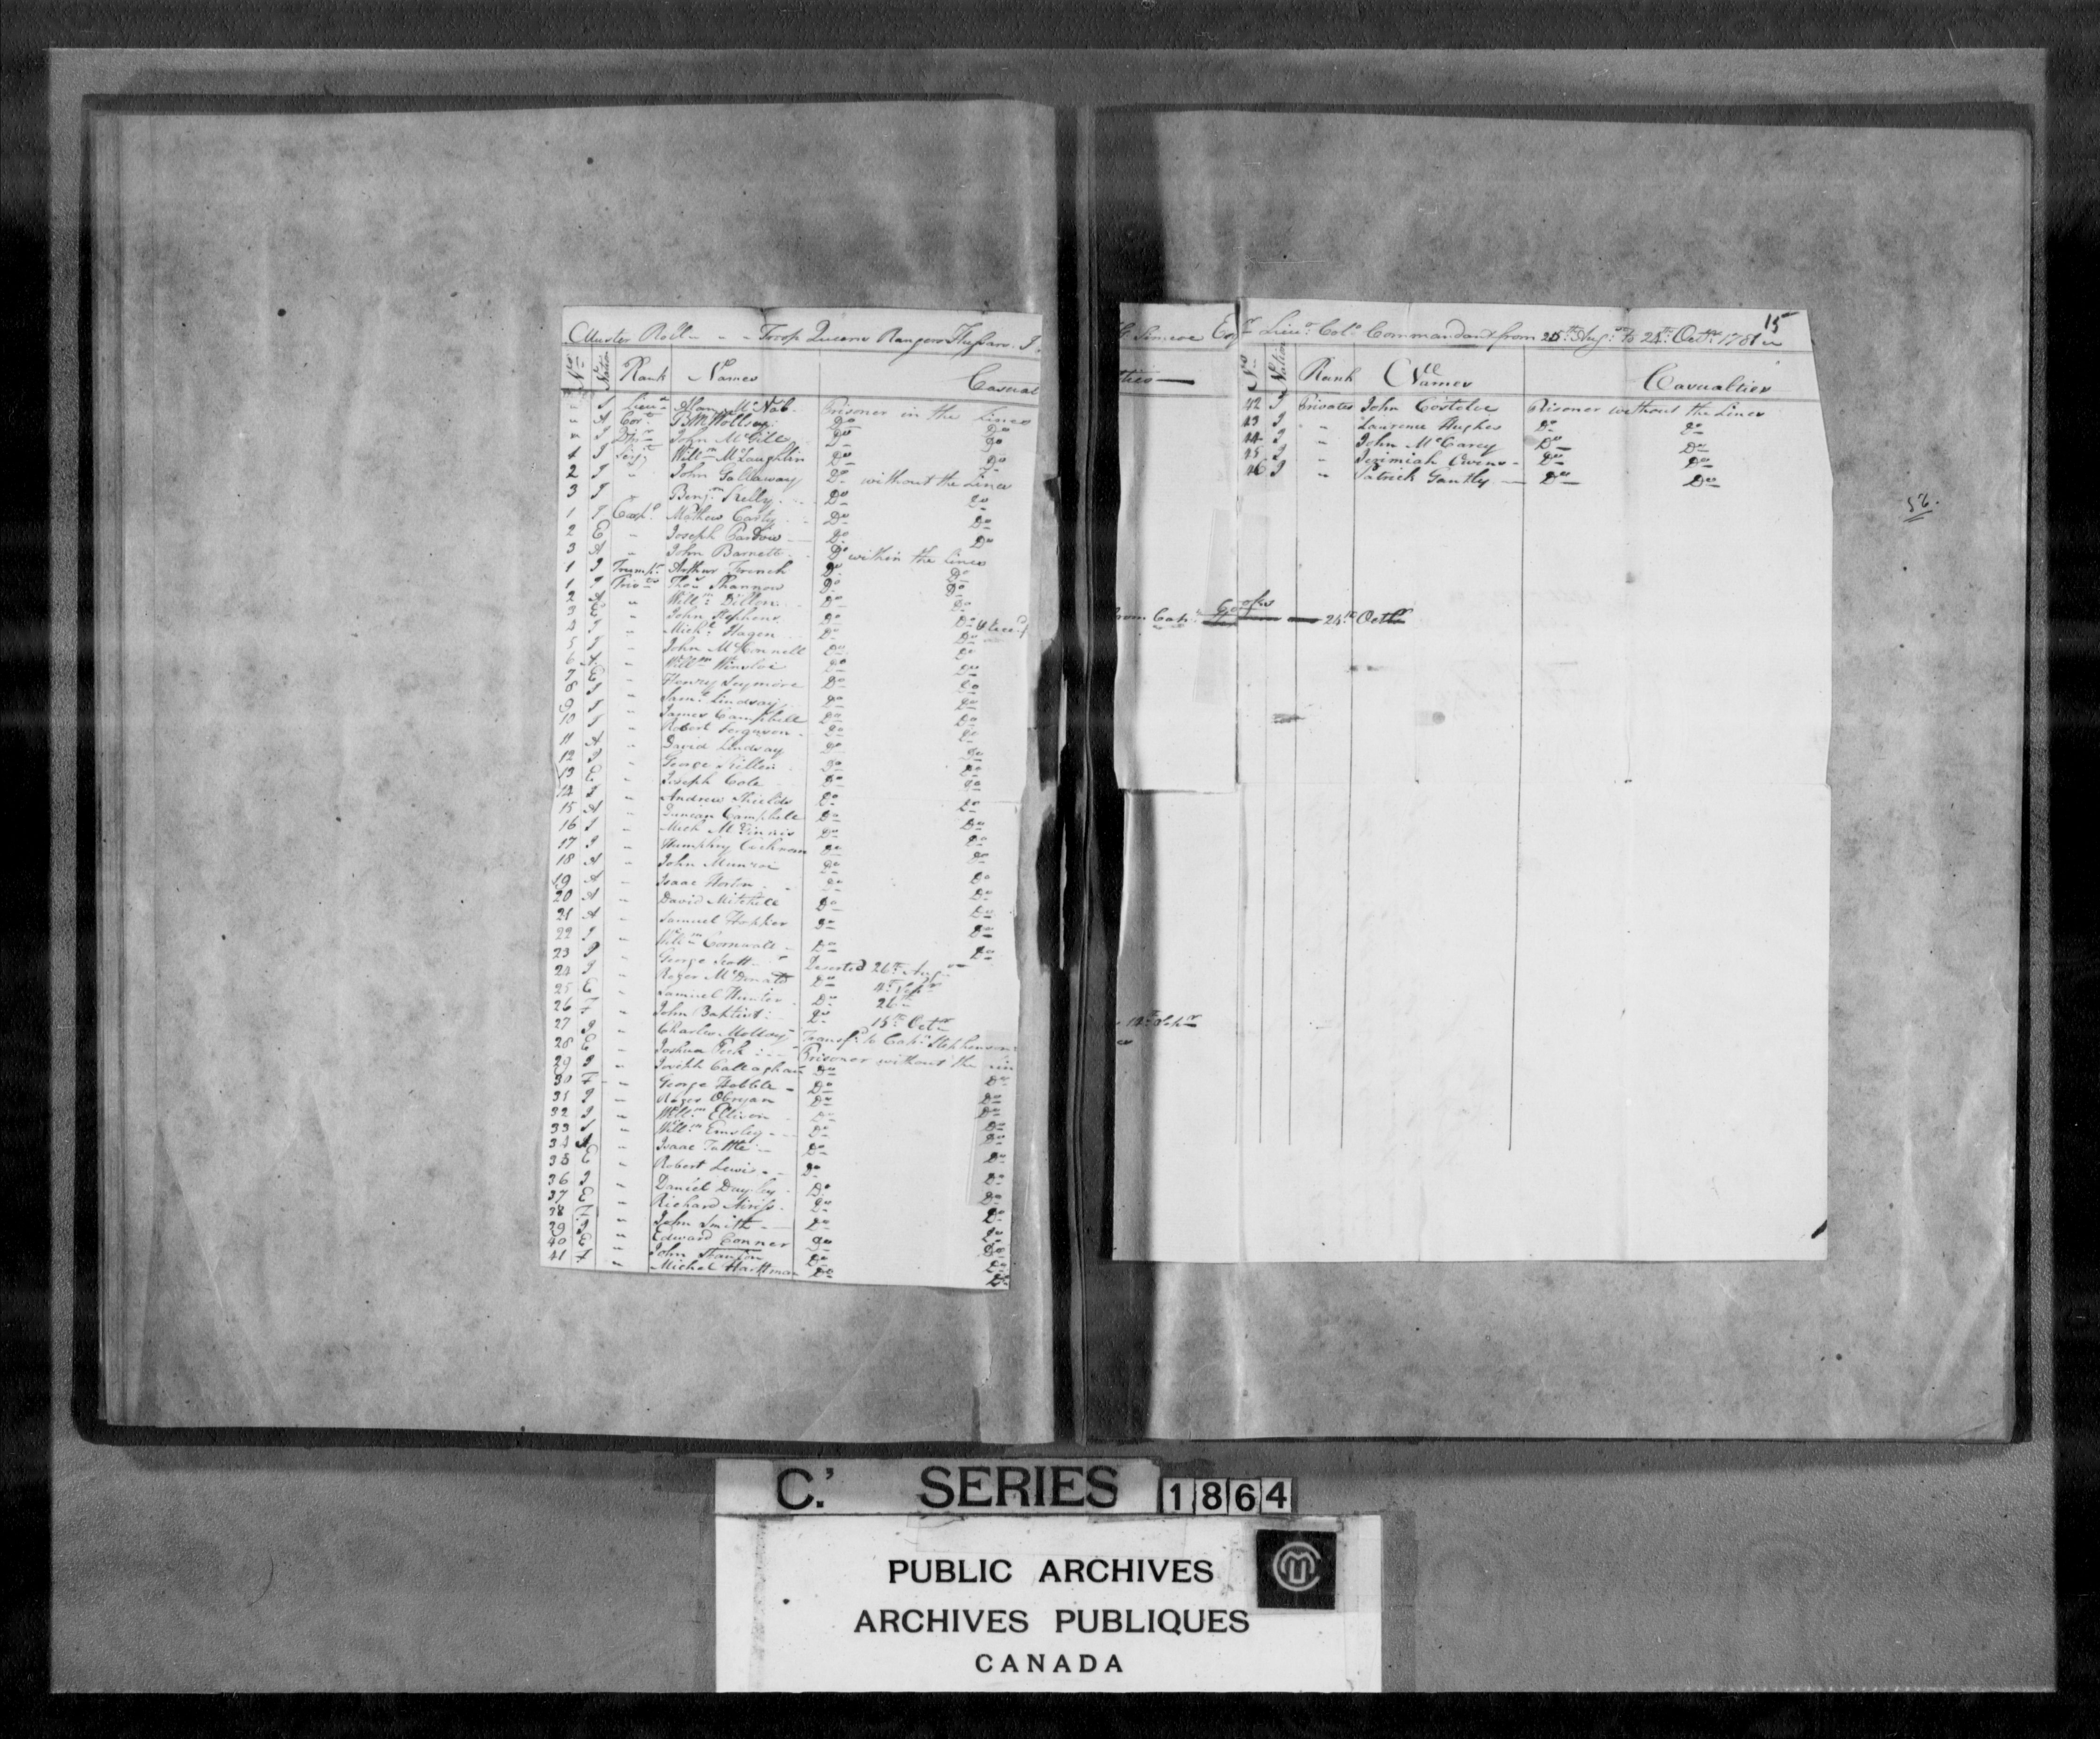 Muster Roll - - - Troop Queens Rangers Hussars. J.
Nos Nation Rank Names Casual
" S Lieut Allan McNab. Prisoner in the Lines
" A Cort. B M Wollsey. Do Do
" I Qr Mr John McGill Do Do
1 I Serjt Willm McLaughlin Do Do
2 I " John Gallaway Do without the Lines
3 I " Benjn Kelly Do Do
1 I Corpl Mathew Carty Do Do
2 E " Joseph Do Do
3 A " John Barnett Do within the Lines
1 I Trumpt Arthur French Do Do
1 I Privates Thos Shannon Do Do
2 A " Willm Dillon Do Do
3 E " John Stephens Do Do
4 I " Michl Hagen Do Do
5 I " John McConnell Do Do
6 A " Willm Winsloe Do Do
7 E " Henry Seymore Do Do
8 I " Saml Lindsay Do Do
9 I " James Campbell Do Do
10 I " Robert Ferguson Do Do
11 A " David Lindsay Do Do
12 I " George Killen Do Do
13 E " Joseph Cole Do Do
14 I " Andrew Shields Do Do
15 A " Duncan Campbell Do Do
16 I " Mich McGinnis Do Do
17 I " Humphry Cochran Do Do
18 A " John Munroe Do Do
19 A " Isaac Horton Do Do
20 A " David Mitchell Do Do
21 A " Samuel Hopper Do Do
22 I " Willm Cornwall Do Do
23 I " George Scott Deserted 26th Augt
24 I " Roger McDonald Do 4th Sepr
25 E " Samuel Hunter Do 26th
26 F " John Baptist Do 15th Octr
27 I " Charles Molloy Transfd to Capt Stephenson
28 E " Joshua Peck Prisoner without the
29 I " Joseph Callaghan Do Do
30 F " George Hobble Do Do
31 I " Roger Obryan Do Do
32 I " Willm Ellison Do Do
33 I " Willm Emsley Do Do
34 A " Isaac Tuttle Do Do
35 E " Robert Lewis Do
36 I " Daniel Do Do
37 E " Richard Do Do
38 F " John Smith Do Do
39 I " Edward Conner Do Do
40 E " John Stanton Do Do
41 F " Michel Hartman Do Do
Simcoe Esqr Lieut Coll Commandant from 25th Augt to 24th Octr 1781
15
ties
Nos Nation Rank Names Casualties
42 I Privates John Costolee Prisoner without the Lines
43 I " Laurence Hughes Do Do
44 I " John McCarey Do Do
45 I " Jerimiah Owens Do Do
46 I " Patrick Gantly Do Do
56.
from Capt 24th Octr
12th Sepr
C.' SERIES 1864
PUBLIC ARCHIVES
ARCHIVES PUBLIQUES
CANADA